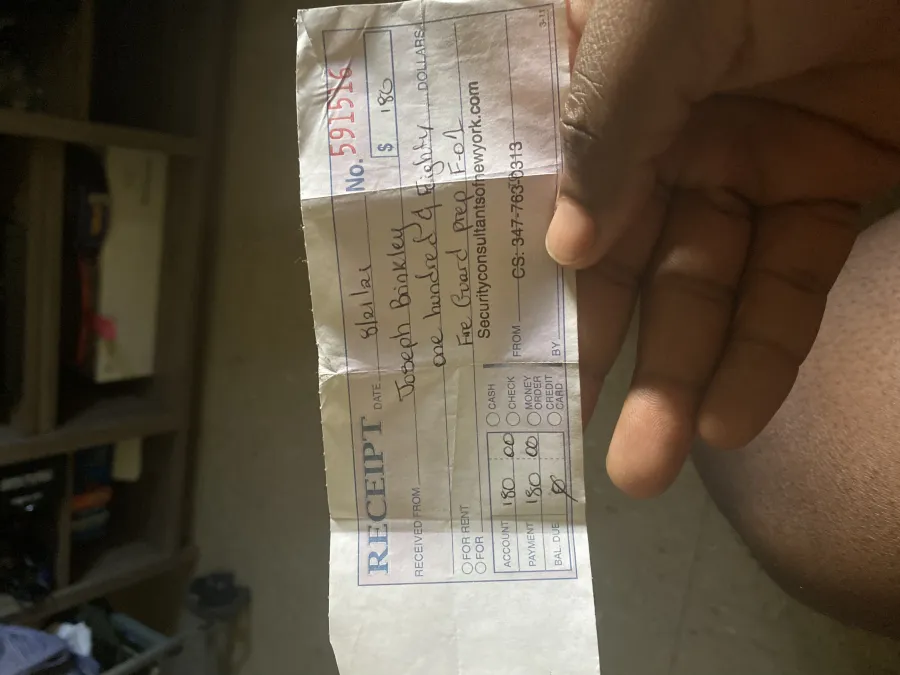 RECEIPT DATE 8/21/21 No. 591516
RECEIVED FROM Joseph Brinkley $ 180
one hundred & Eighty DOLLARS
FOR RENT
FOR Fire Guard prep F-01
Securityconsultantsofnewyork.com
ACCOUNT 180 00 CASH
PAYMENT 180 00 CHECK
BAL. DUE 0 MONEY ORDER
CREDIT CARD
FROM CS: 347-763-0313
BY
3-11